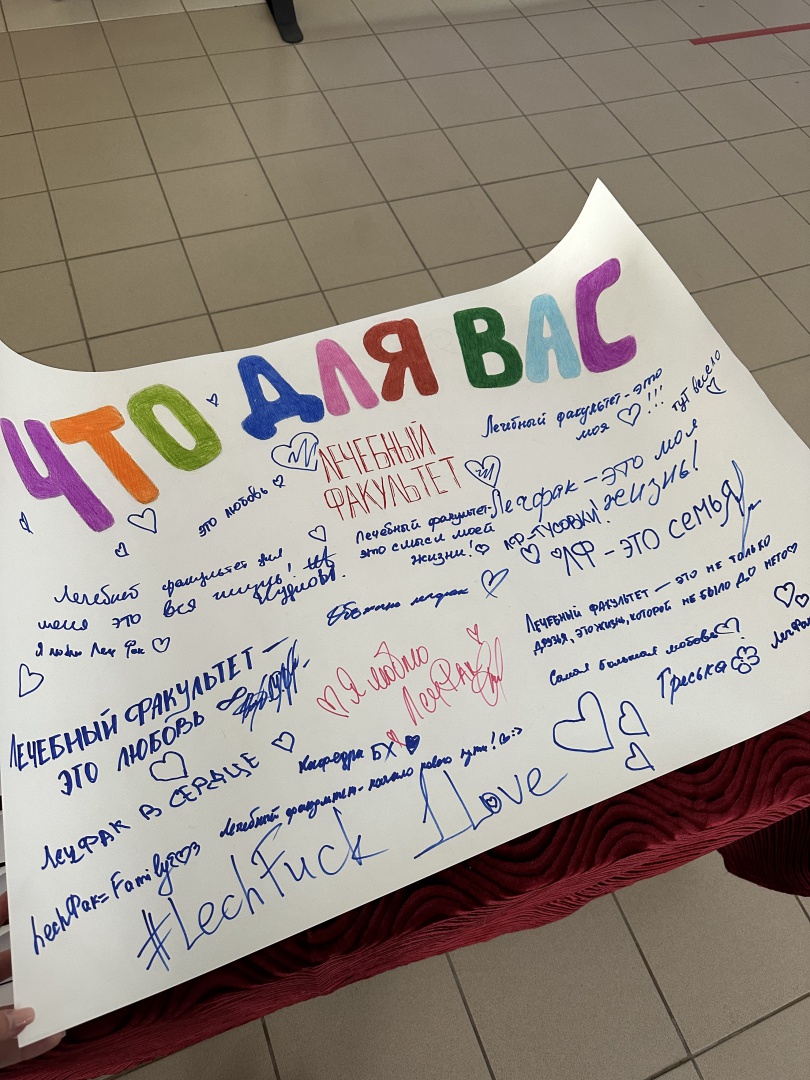 ЧТО ДЛЯ ВАС
ЛЕЧЕБНЫЙ
ФАКУЛЬТЕТ
это любовь
Лечебный факультет - это
моя !!!
тут весело
Лечебный факультет для
меня это вся жизнь!
Я люблю Леч Фак
Лечебный факультет-
это смысл моей
жизни!
Лечфак - это моя
жизнь!
ЛФ-ТУСОВКИ!
ЛФ - ЭТО СЕМЬЯ
Обожаю лечфак
ЛЕЧЕБНЫЙ ФАКУЛЬТЕТ — ЭТО НЕ ТОЛЬКО
ДРУЗЬЯ, ЭТО ЖИЗНЬ, КОТОРОЙ НЕ БЫЛО ДО НЕГО
Самая большая любовь
ЛЕЧЕБНЫЙ ФАКУЛЬТЕТ —
ЭТО ЛЮБОВЬ
Я люблю
ЛечФак
Греська
ЛечФак
ЛЕЧФАК В СЕРДЦЕ
Кафедра БХ
Лечебный факультет - начало нового пути!
LechФак=Family
#LechFuck 1Love